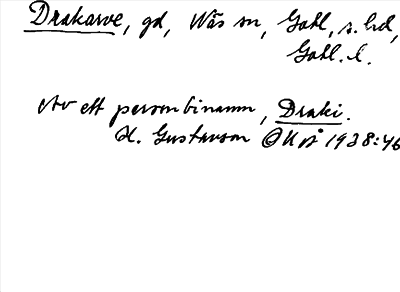 Drakarve, gd, Väs sn, Gotl. s. hd,
Gotl. l.
Av ett personbinamn, Draki.
H. Gustavson OUÅ 1938:46